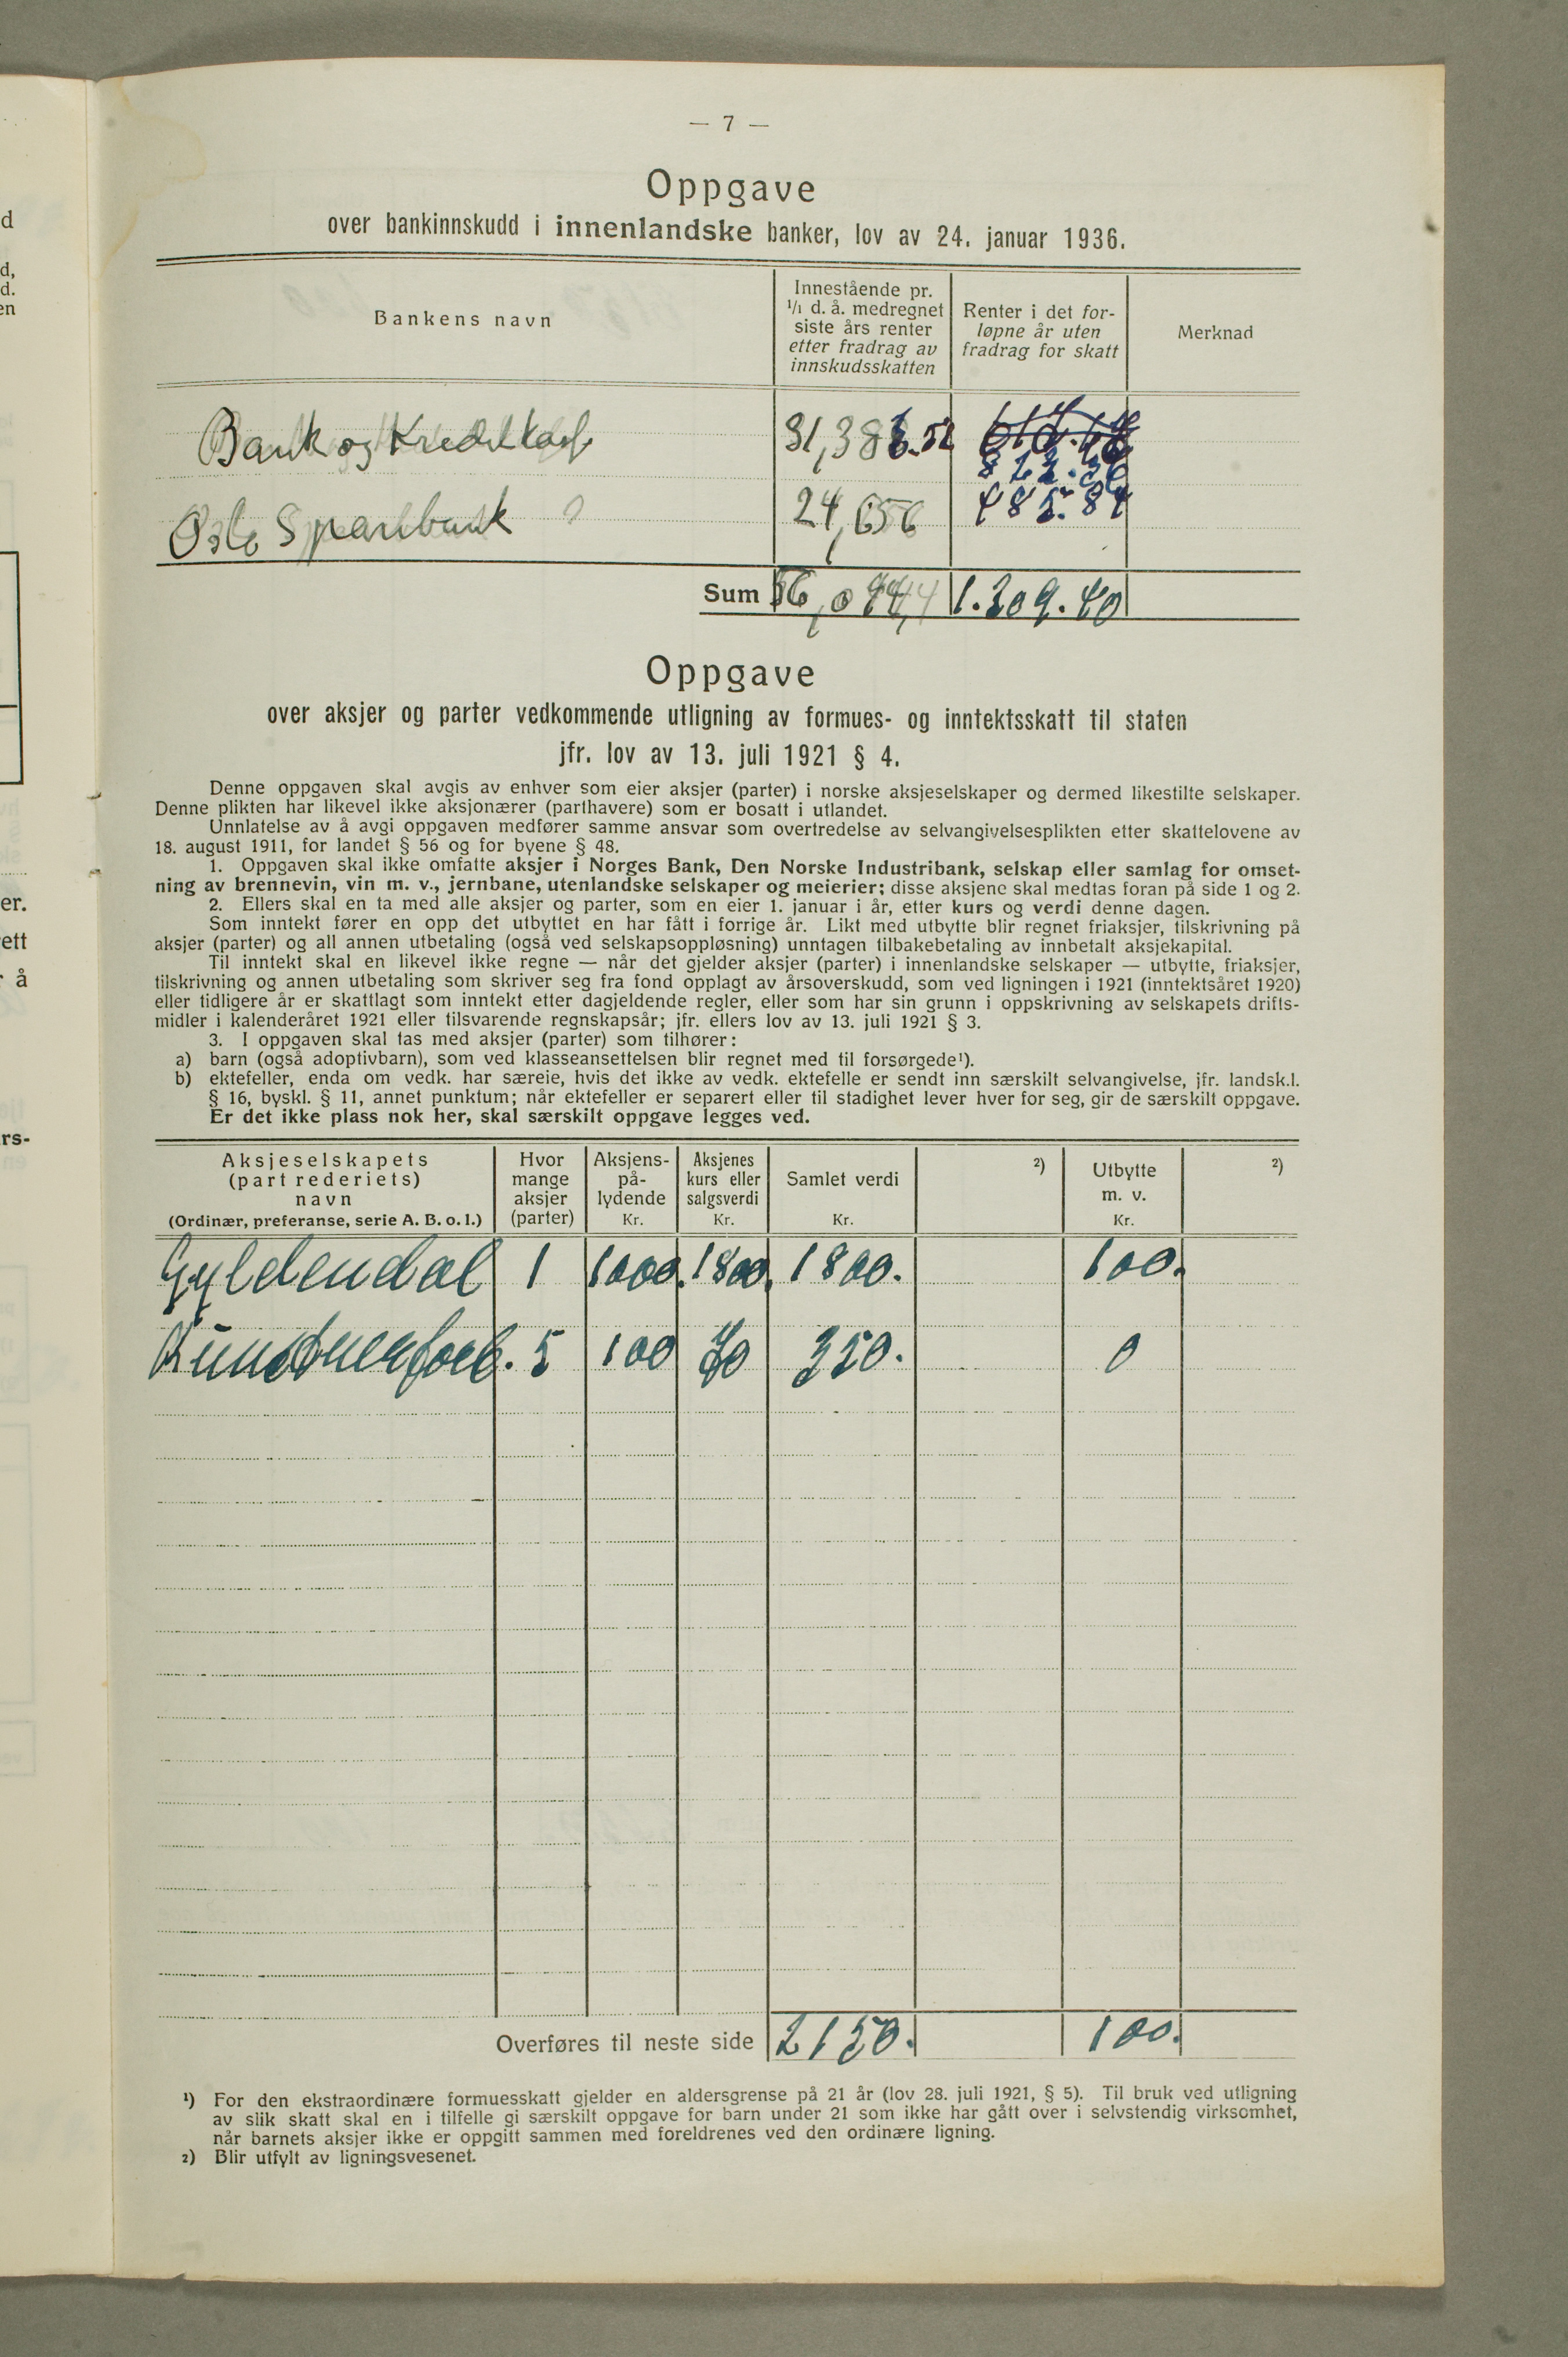 — 7 —
Oppgave
over bankinnskudd i innenlandske banker, lov av 24. januar 1936.
Bankens navn
Innestående pr.
1/1 d. å. medregnet
siste års renter
etter fradrag av
innskudsskatten
Renter i det for-
løpne år uten
fradrag for skatt
Merknad
Bank og Kreditkasse 31,388.52
823.56
Oslo Sparebank 24,656 485.84
Sum 56,044,4 1.309.40
Oppgave
over aksjer og parter vedkommende utligning av formues- og inntektsskatt til staten
jfr. lov av 13. juli 1921 § 4.
Denne oppgaven skal avgis av enhver som eier aksjer (parter) i norske aksjeselskaper og dermed likestilte selskaper.
Denne plikten har likevel ikke aksjonærer (parthavere) som er bosatt i utlandet.
Unnlatelse av å avgi oppgaven medfører samme ansvar som overtredelse av selvangivelsesplikten etter skattelovene av
18. august 1911, for landet § 56 og for byene § 48.
1. Oppgaven skal ikke omfatte aksjer i Norges Bank, Den Norske Industribank, selskap eller samlag for omset-
ning av brennevin, vin m. v., jernbane, utenlandske selskaper og meierier; disse aksjene skal medtas foran på side 1 og 2.
2. Ellers skal en ta med alle aksjer og parter, som en eier 1. januar i år, etter kurs og verdi denne dagen.
Som inntekt fører en opp det utbyttet en har fått i forrige år. Likt med utbytte blir regnet friaksjer, tilskrivning på
aksjer (parter) og all annen utbetaling (også ved selskapsoppløsning) unntagen tilbakebetaling av innbetalt aksjekapital.
Til inntekt skal en likevel ikke regne — når det gjelder aksjer (parter) i innenlandske selskaper — utbytte, friaksjer,
tilskrivning og annen utbetaling som skriver seg fra fond opplagt av årsoverskudd, som ved ligningen i 1921 (inntektsåret 1920)
eller tidligere år er skattlagt som inntekt etter dagjeldende regler, eller som har sin grunn i oppskrivning av selskapets drifts-
midler i kalenderåret 1921 eller tilsvarende regnskapsår; jfr. ellers lov av 13. juli 1921 § 3.
3. I oppgaven skal tas med aksjer (parter) som tilhører:
a) barn (også adoptivbarn), som ved klasseansettelsen blir regnet med til forsørgede¹).
b) ektefeller, enda om vedk. har særeie, hvis det ikke av vedk. ektefelle er sendt inn særskilt selvangivelse, jfr. landsk.l.
§ 16, byskl. § 11, annet punktum; når ektefeller er separert eller til stadighet lever hver for seg, gir de særskilt oppgave.
Er det ikke plass nok her, skal særskilt oppgave legges ved.
Aksjeselskapets
(part rederiets)
navn
(Ordinær, preferanse, serie A. B. o. l.)
Hvor
mange
aksjer
(parter)
Aksjens-
på-
lydende
Kr.
Aksjenes
kurs eller
salgsverdi
Kr.
Samlet verdi
Kr.
²)
Utbytte
m. v.
Kr.
²)
Gyldendal 1 1000. 1800. 1800. 100.
Kunstnerforb. 5 100 70 350. 0
Overføres til neste side 2150. 100.
¹) For den ekstraordinære formuesskatt gjelder en aldersgrense på 21 år (lov 28. juli 1921, § 5). Til bruk ved utligning
av slik skatt skal en i tilfelle gi særskilt oppgave for barn under 21 som ikke har gått over i selvstendig virksomhet,
når barnets aksjer ikke er oppgitt sammen med foreldrenes ved den ordinære ligning.
²) Blir utfylt av ligningsvesenet.
d
d,
d.
en
er.
ett
r å
rs-